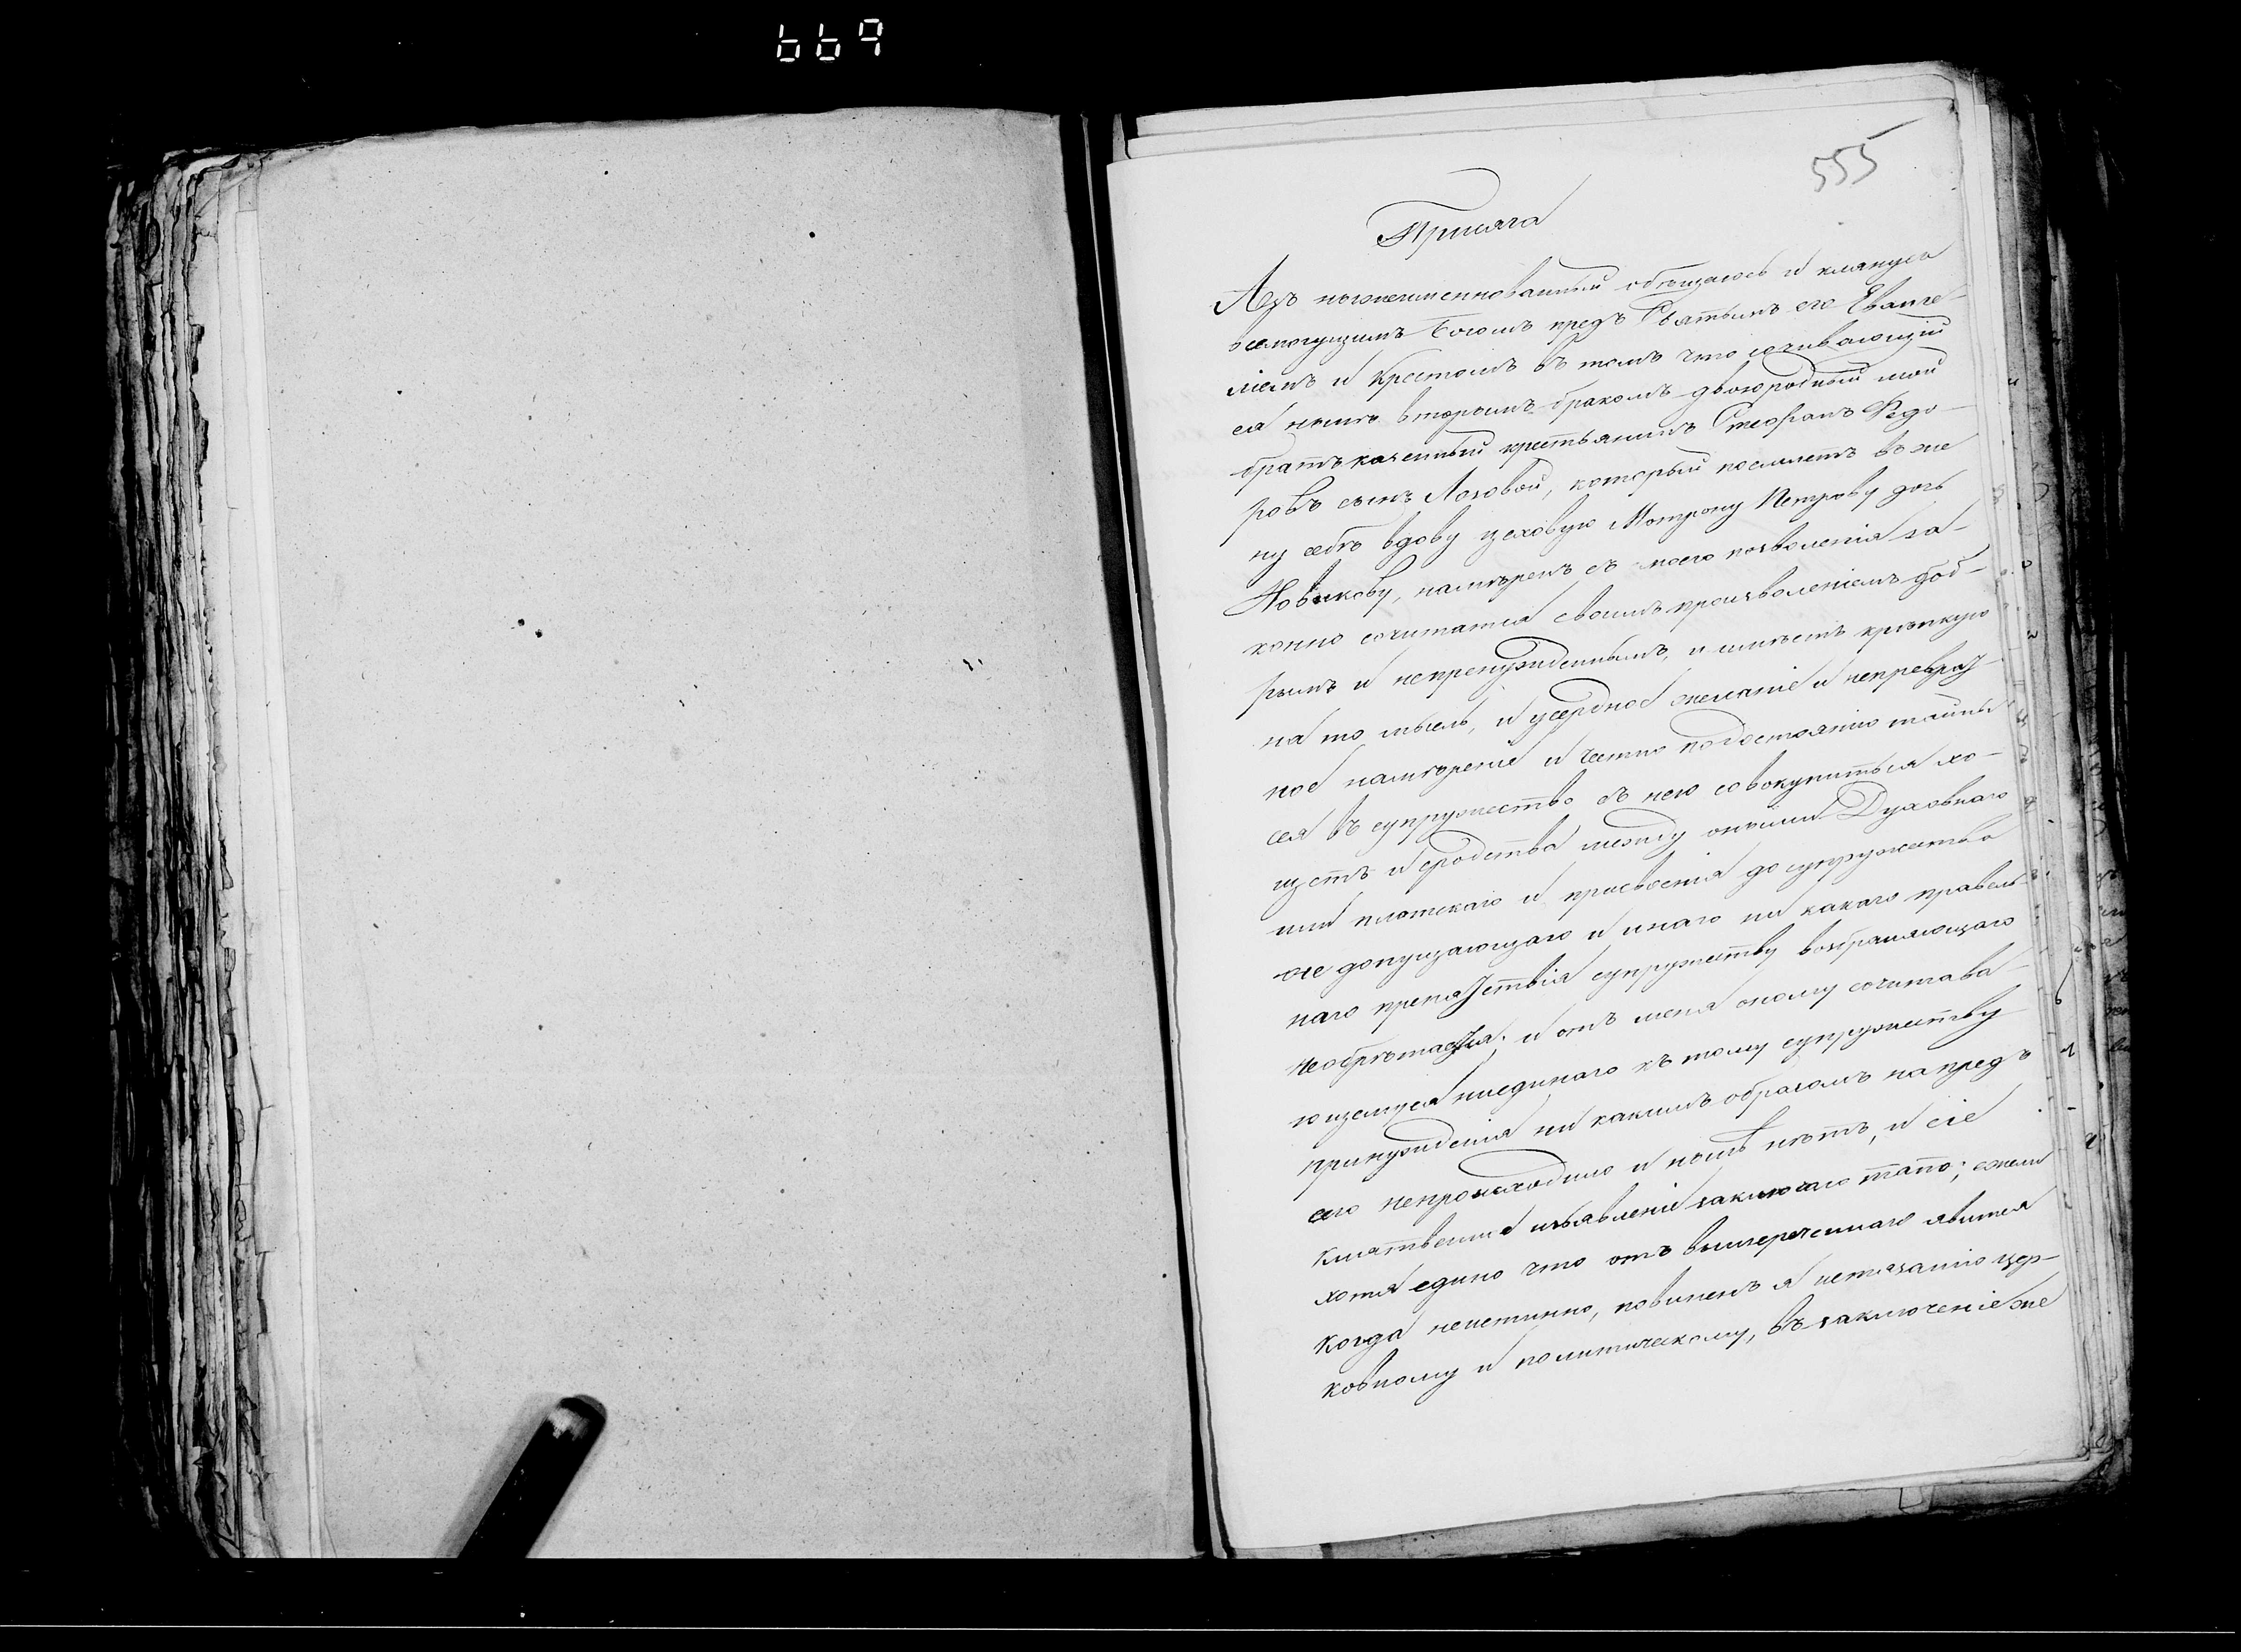 669
555
Присяга
Азъ нижеименнованный обѣщаюсь и клянусь
всемогущимъ Богомъ предъ Святымъ его Еванге-
ліемъ и Крестомъ въ томъ что сочивающій
ся нынѣ вторымъ бракомъ двоюродный мой
братъ казенный крестьянинъ Стефанъ Федо-
ровъ сынъ Лозовой, который поемлетъ въ же
ну себѣ вдову цеховую Мотрону Петрову дочь
Новикову, намѣренъ съ моего позволенія за-
конно сочитатся своимъ произволеніемъ доб-
рымъ и непренужденнымъ, и имѣетъ крѣпкую
на то мысль, и усердное желаніе и непревраз-
ное намѣреніе и чемно подостоянію тайны
сея въ супружество съ нею совокупиться хо-
щетъ и сродства между оными Духовнаго
или плотскаго и присвоенія до супружества
не допущающаго и инаго ни какаго правель-
наго препятствія супружеству возбраняющаго
необрѣтается; и отъ меня оному сочитава-
ющемуся ниединаго къ тому супружеству
принужденія ни какимъ образомъ напредъ
сего непроисходило и нынѣ нѣтъ, и сіе
клятвенное изъявленіе заключаю тато; ежели
хотя едино что отъ вышереченнаго явится
когда неистинно, повиненъ я истязанію цер-
ковному и политическому, въ заключеніе же